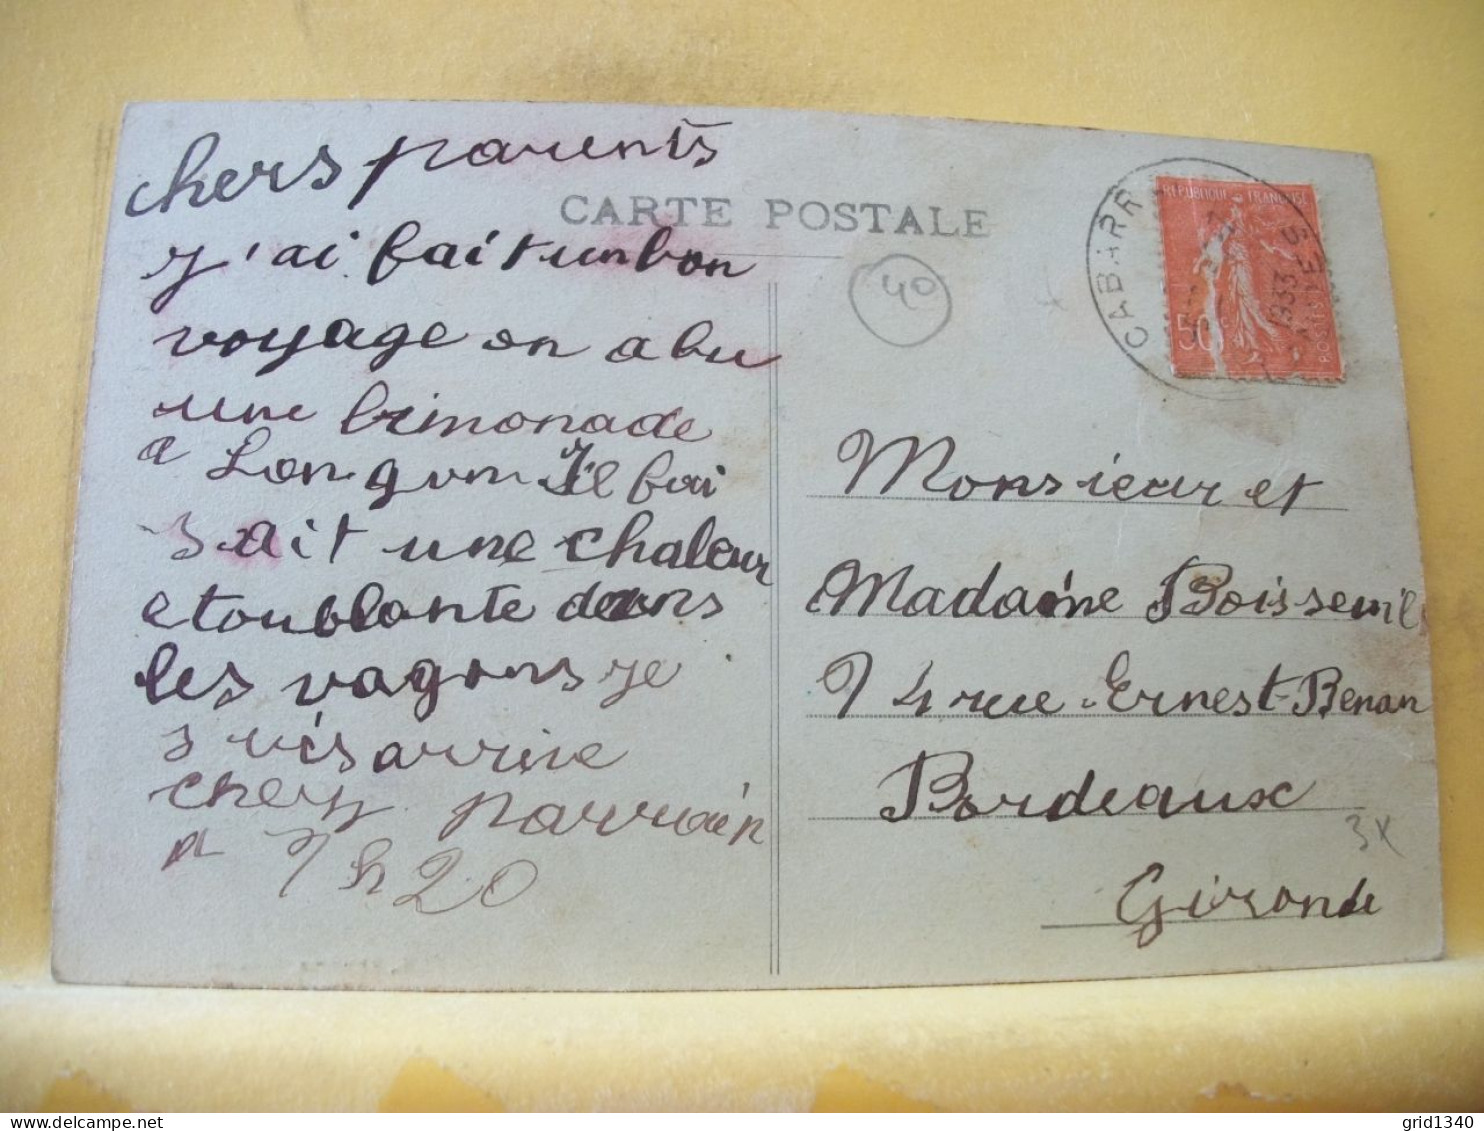 chers parents
CARTE POSTALE
j'ai fait un bon
voyage on a bu
une limonade
a Langon Il fai
sait une chaleur
etoublante dans
les vagons je
suis arrive
chez parrain
a 7h20
40
CABARR
ES
1933
REPUBLIQUE FRANÇAISE
50
POSTES
Monsieur et
Madame Boisseuil
74 rue Ernest-Renan
Bordeaux
Gironde
3x
grid1340